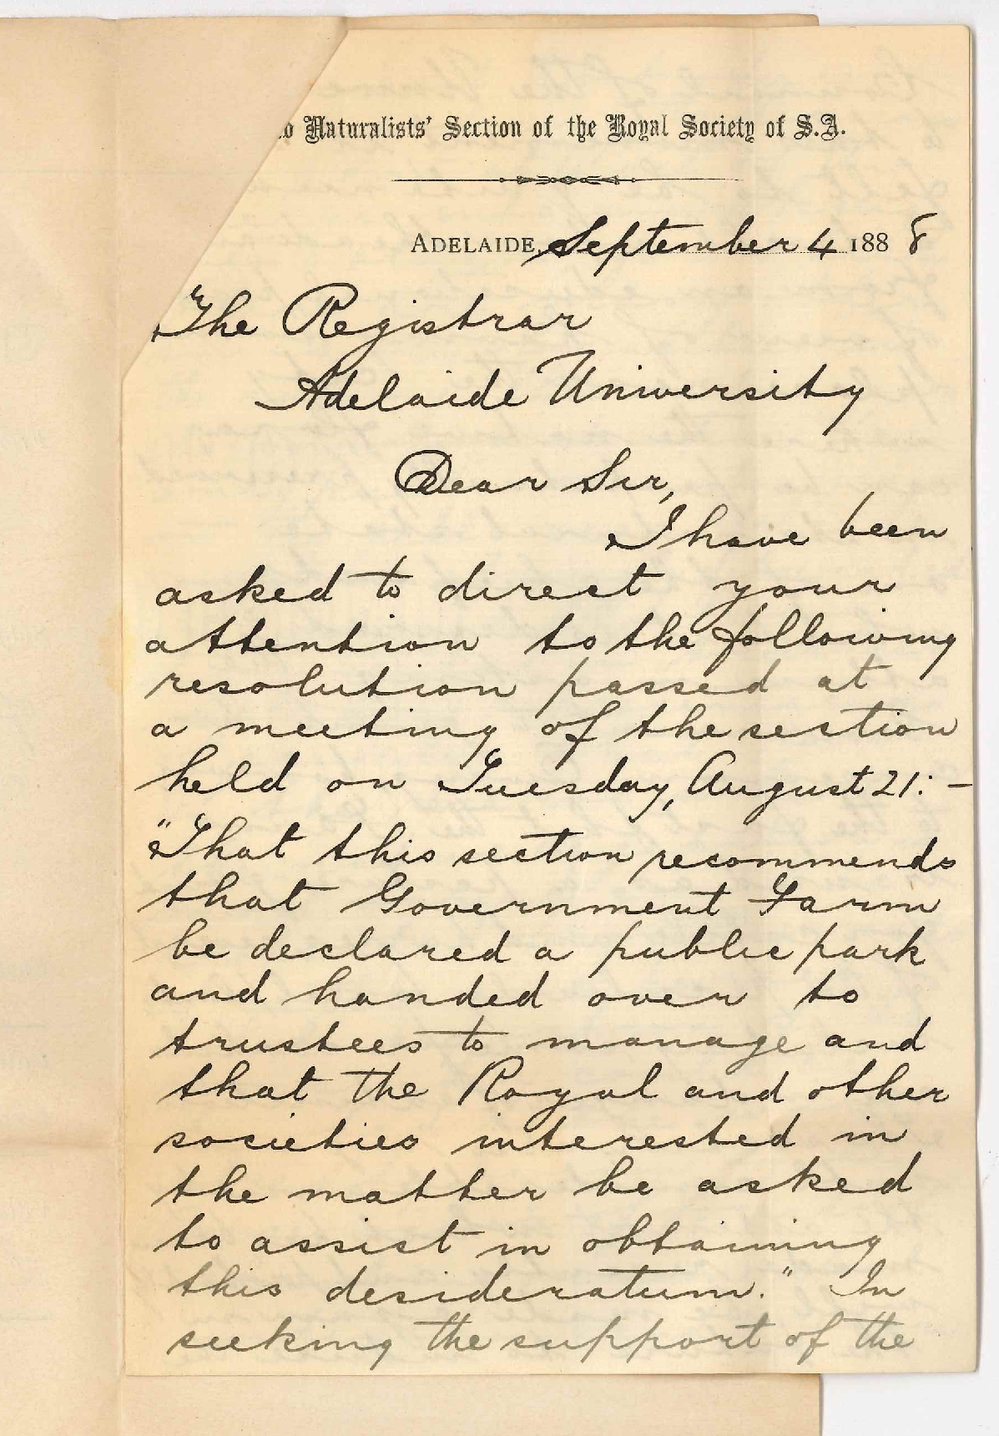 Naturalists' Section of the Royal Society of S.A.
ADELAIDE, September 4 1888
The Registrar
Adelaide University
Dear Sir,
I have been
asked to direct your
attention to the following
resolution passed at
a meeting of the section
held on Tuesday, August 21: -
"That this section recommends
that Government Farm
be declared a public park
and handed over to
trustees to manage and
that the Royal and other
societies interested in
the matter be asked
to assist in obtaining
this desideratum." In
seeking the support of the